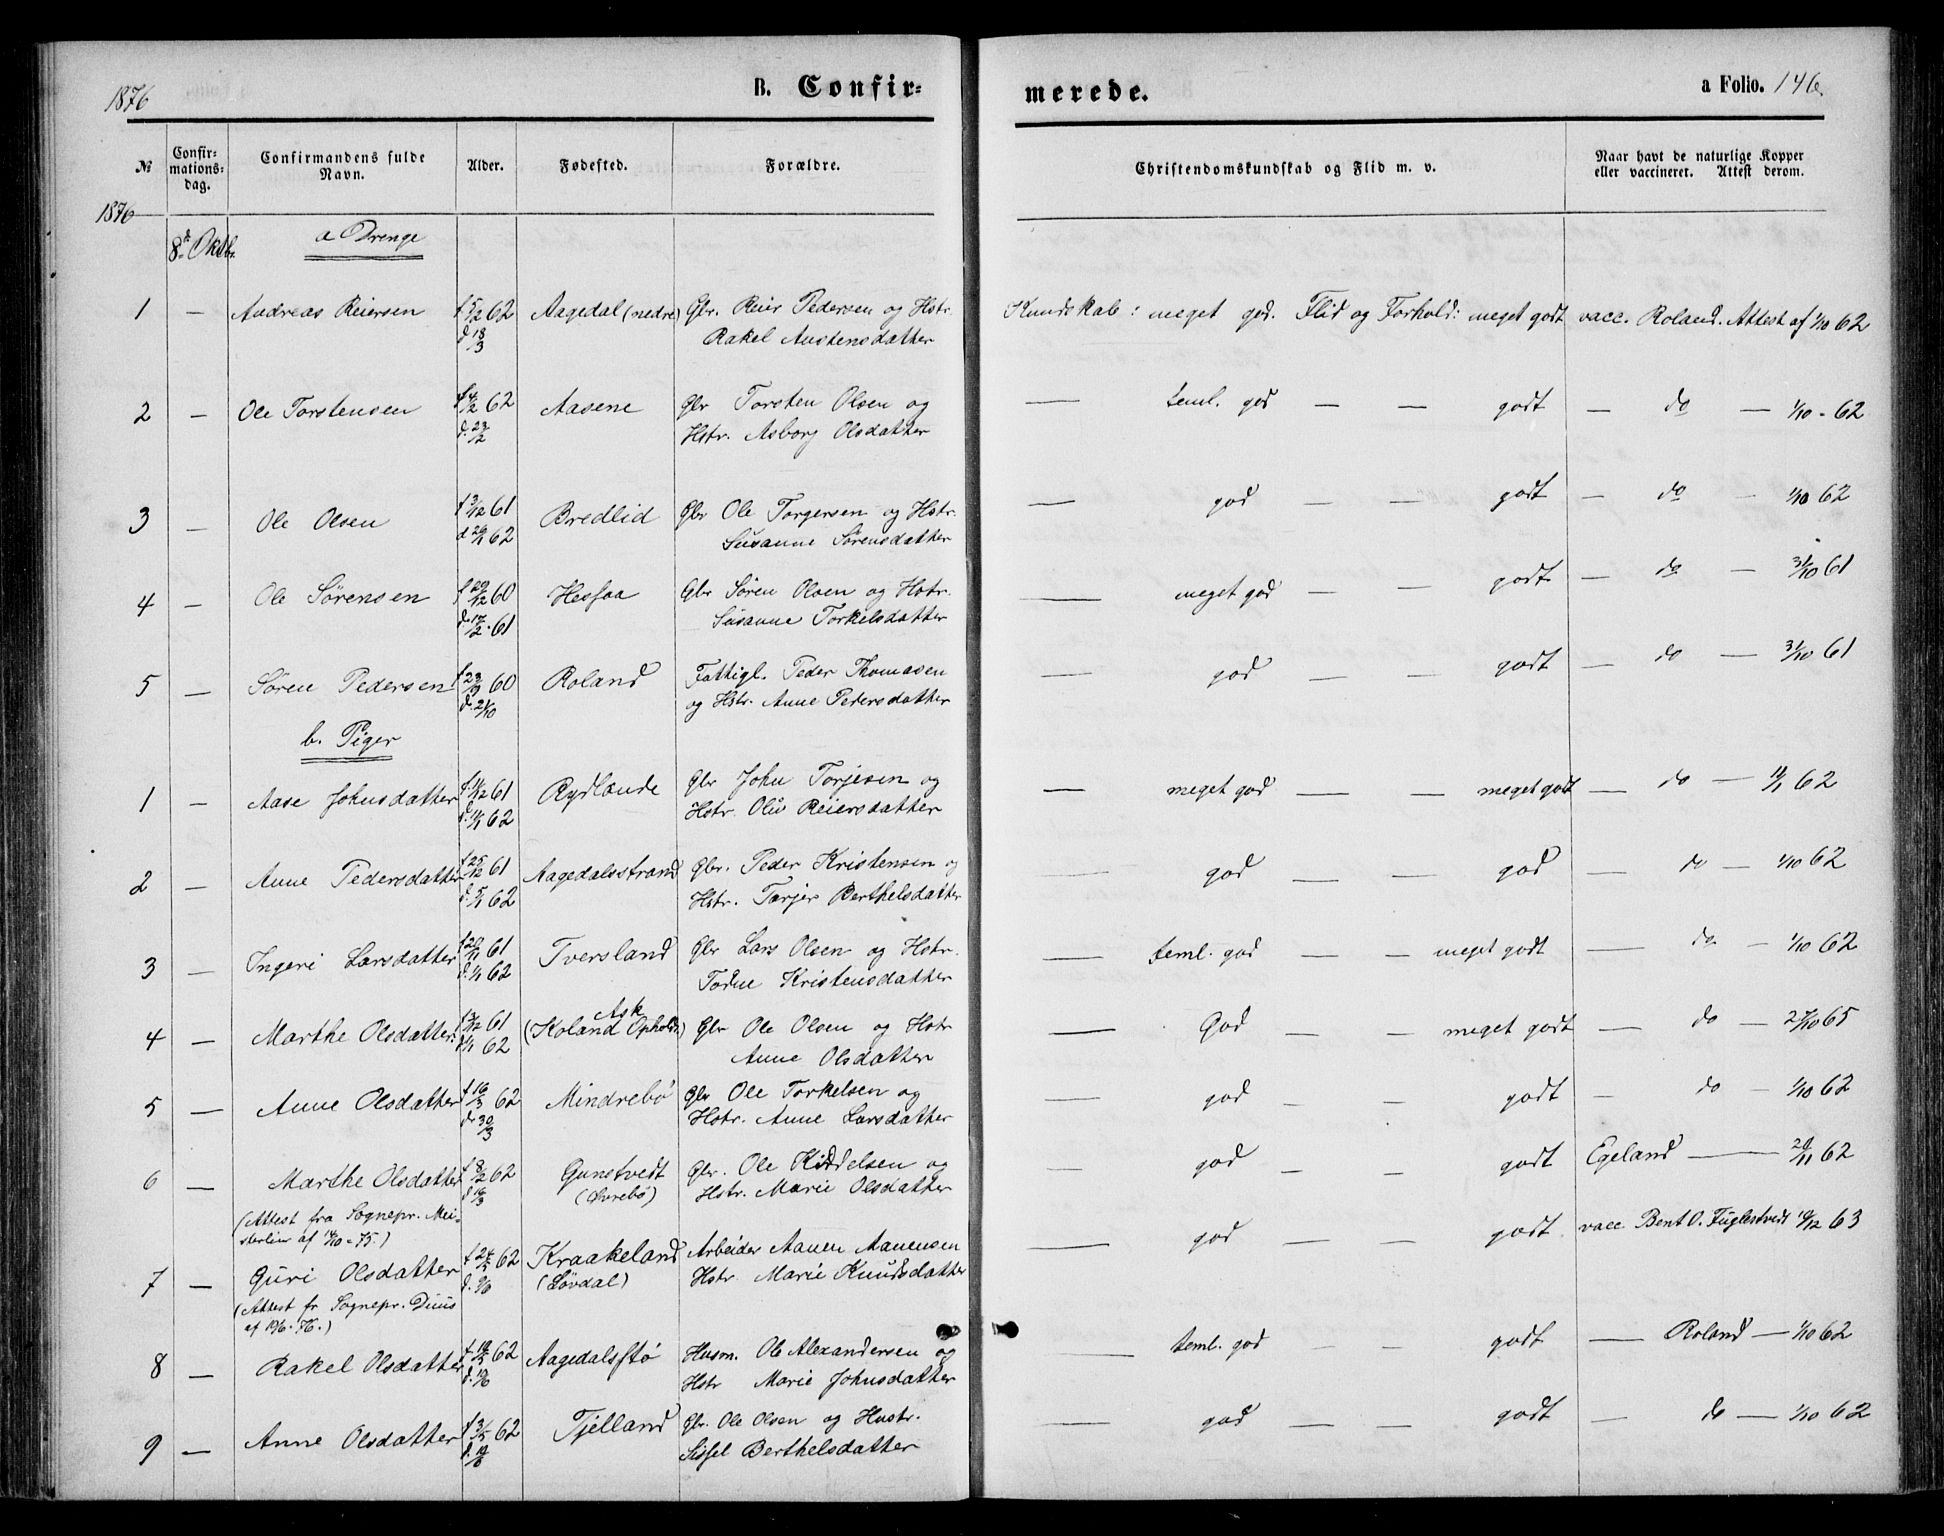 1876
B. Confir-
merede.
a Folio. 146
№ Confir-mations-dag. Confirmandens fulde Navn. Alder. Fødested. Forældre. Christendomskundskab og Flid m. v. Naar havt de naturlige Kopper eller vaccineret. Attest derom.
1876
8de Oktbr. a Drenge
1 — Andreas Reiersen f 5/2 62 Aagedal (nedre) Gbr. Reier Pedersen og Hstr. Kundskab: meget god. Flid og Forhold: meget godt vacc. Roland. Attest af 1/10 62
d 18/3 Rakel Austensdatter
2 — Ole Torstensen f 4/2 62 Aasene Gbr Torsten Olsen og — teml. god — — godt — do — 1/10 - 62
d. 23/2 Hstr. Asborg Olsdatter
3 — Ole Olsen f 3/12 61 Bredlid Gbr Ole Torgersen og Hstr. — god — — godt — do — 1/10 62
d 26/1 62 Susanne Sørensdatter
4 — Ole Sørensen f 29/12 60 Hesfaa Gbr Søren Olsen og Hstr. — meget god — — godt — do — 31/10 61
d. 17/2 . 61 Susanne Torkelsdatter
5 — Søren Pedersen f 23/9 60 Roland Fattigl. Peder Thomasen — god — — godt — do — 31/10 61
d. 21/10 og Hstr. Anne Pedersdatter
b. Piger
1 — Aase Johnsdatter 61 Rydlande Gbr John Torjesen og — meget god — — meget godt — do — 62
62 Hstr. Oliv Reiersdatter
2 — Anne Pedersdatter f 25/12 61 Aagedalsstrand Gbr. Peder Kristensen og — god — — god — do — 1/10 62
d. 5/1 62 Hstr. Torjer Berthelsdatter
3 — Ingeri Larsdatter 61 Tversland Gbr Lars Olsen og Hstr. — teml. god — — meget godt — do — 1/10 62
d. 1/1 62 Todne Kristensdatter
Ask
4 — Marthe Olsdatter 61 (Roland Opholdt) Gbr Ole Olsen og Hstr — God — — meget godt — do — 65
62 Anne Olsdatter
5 — Anne Olsdatter f 16/3 62 Mindrebø Gbr Ole Torkelsen og — god — — godt — do — 1/10 62
d 30/3 Hstr. Anne Larsdatter
6 — Marthe Olsdatter f 8/2 62 Gunstvedt Gbr. Ole Kiddelsen og — god — — godt Egeland — 20/11 62
d 16/3 (Øvrebø) Hstr. Marie Olsdatter
(Attest fra Sognepr. Mei-
sterlin af 75.)
7 — Guri Olsdatter 62 Kraakeland Arbeider Aanen Aanensen — god — — godt. vacc Bent O. Fuglestvedt 10/12 63
d. 9/6 (Løvdal) Hstr. Marie Knudsdatter
(Attest fr Sognepr. Duus
af 19/6 - 76.)
8 — Rakel Olsdatter 62 Aagedalsstø Husm. Ole Alexandersen og — teml. god — — godt — Roland — 1/10 62
Hstr Marie Johnsdatter
9 — Anne Olsdatter f 3/5 62 Tjelland Gbr. Ole Olsen og Hustr. — god — — godt — do — 1/10 62
Sissel Berthelsdatter